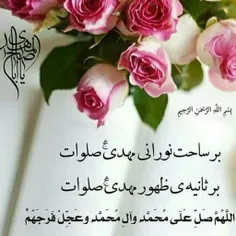 بِسْمِ اللَّهِ الرَّحْمَنِ الرَّحِيمِ
بر ساحت نورانی مهدی عج صلوات
بر ثانیه‌ی ظهور مهدی عج صلوات
اللَّهُمَّ صَلِّ عَلَى مُحَمَّد وَآلِ مُحَمَّد وَعَجِّلْ فَرَجَهُمْ